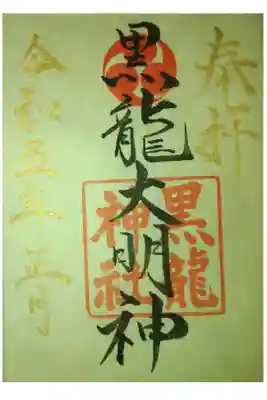 奉拝
黒龍大明神
黒龍
神社
令和五年正月